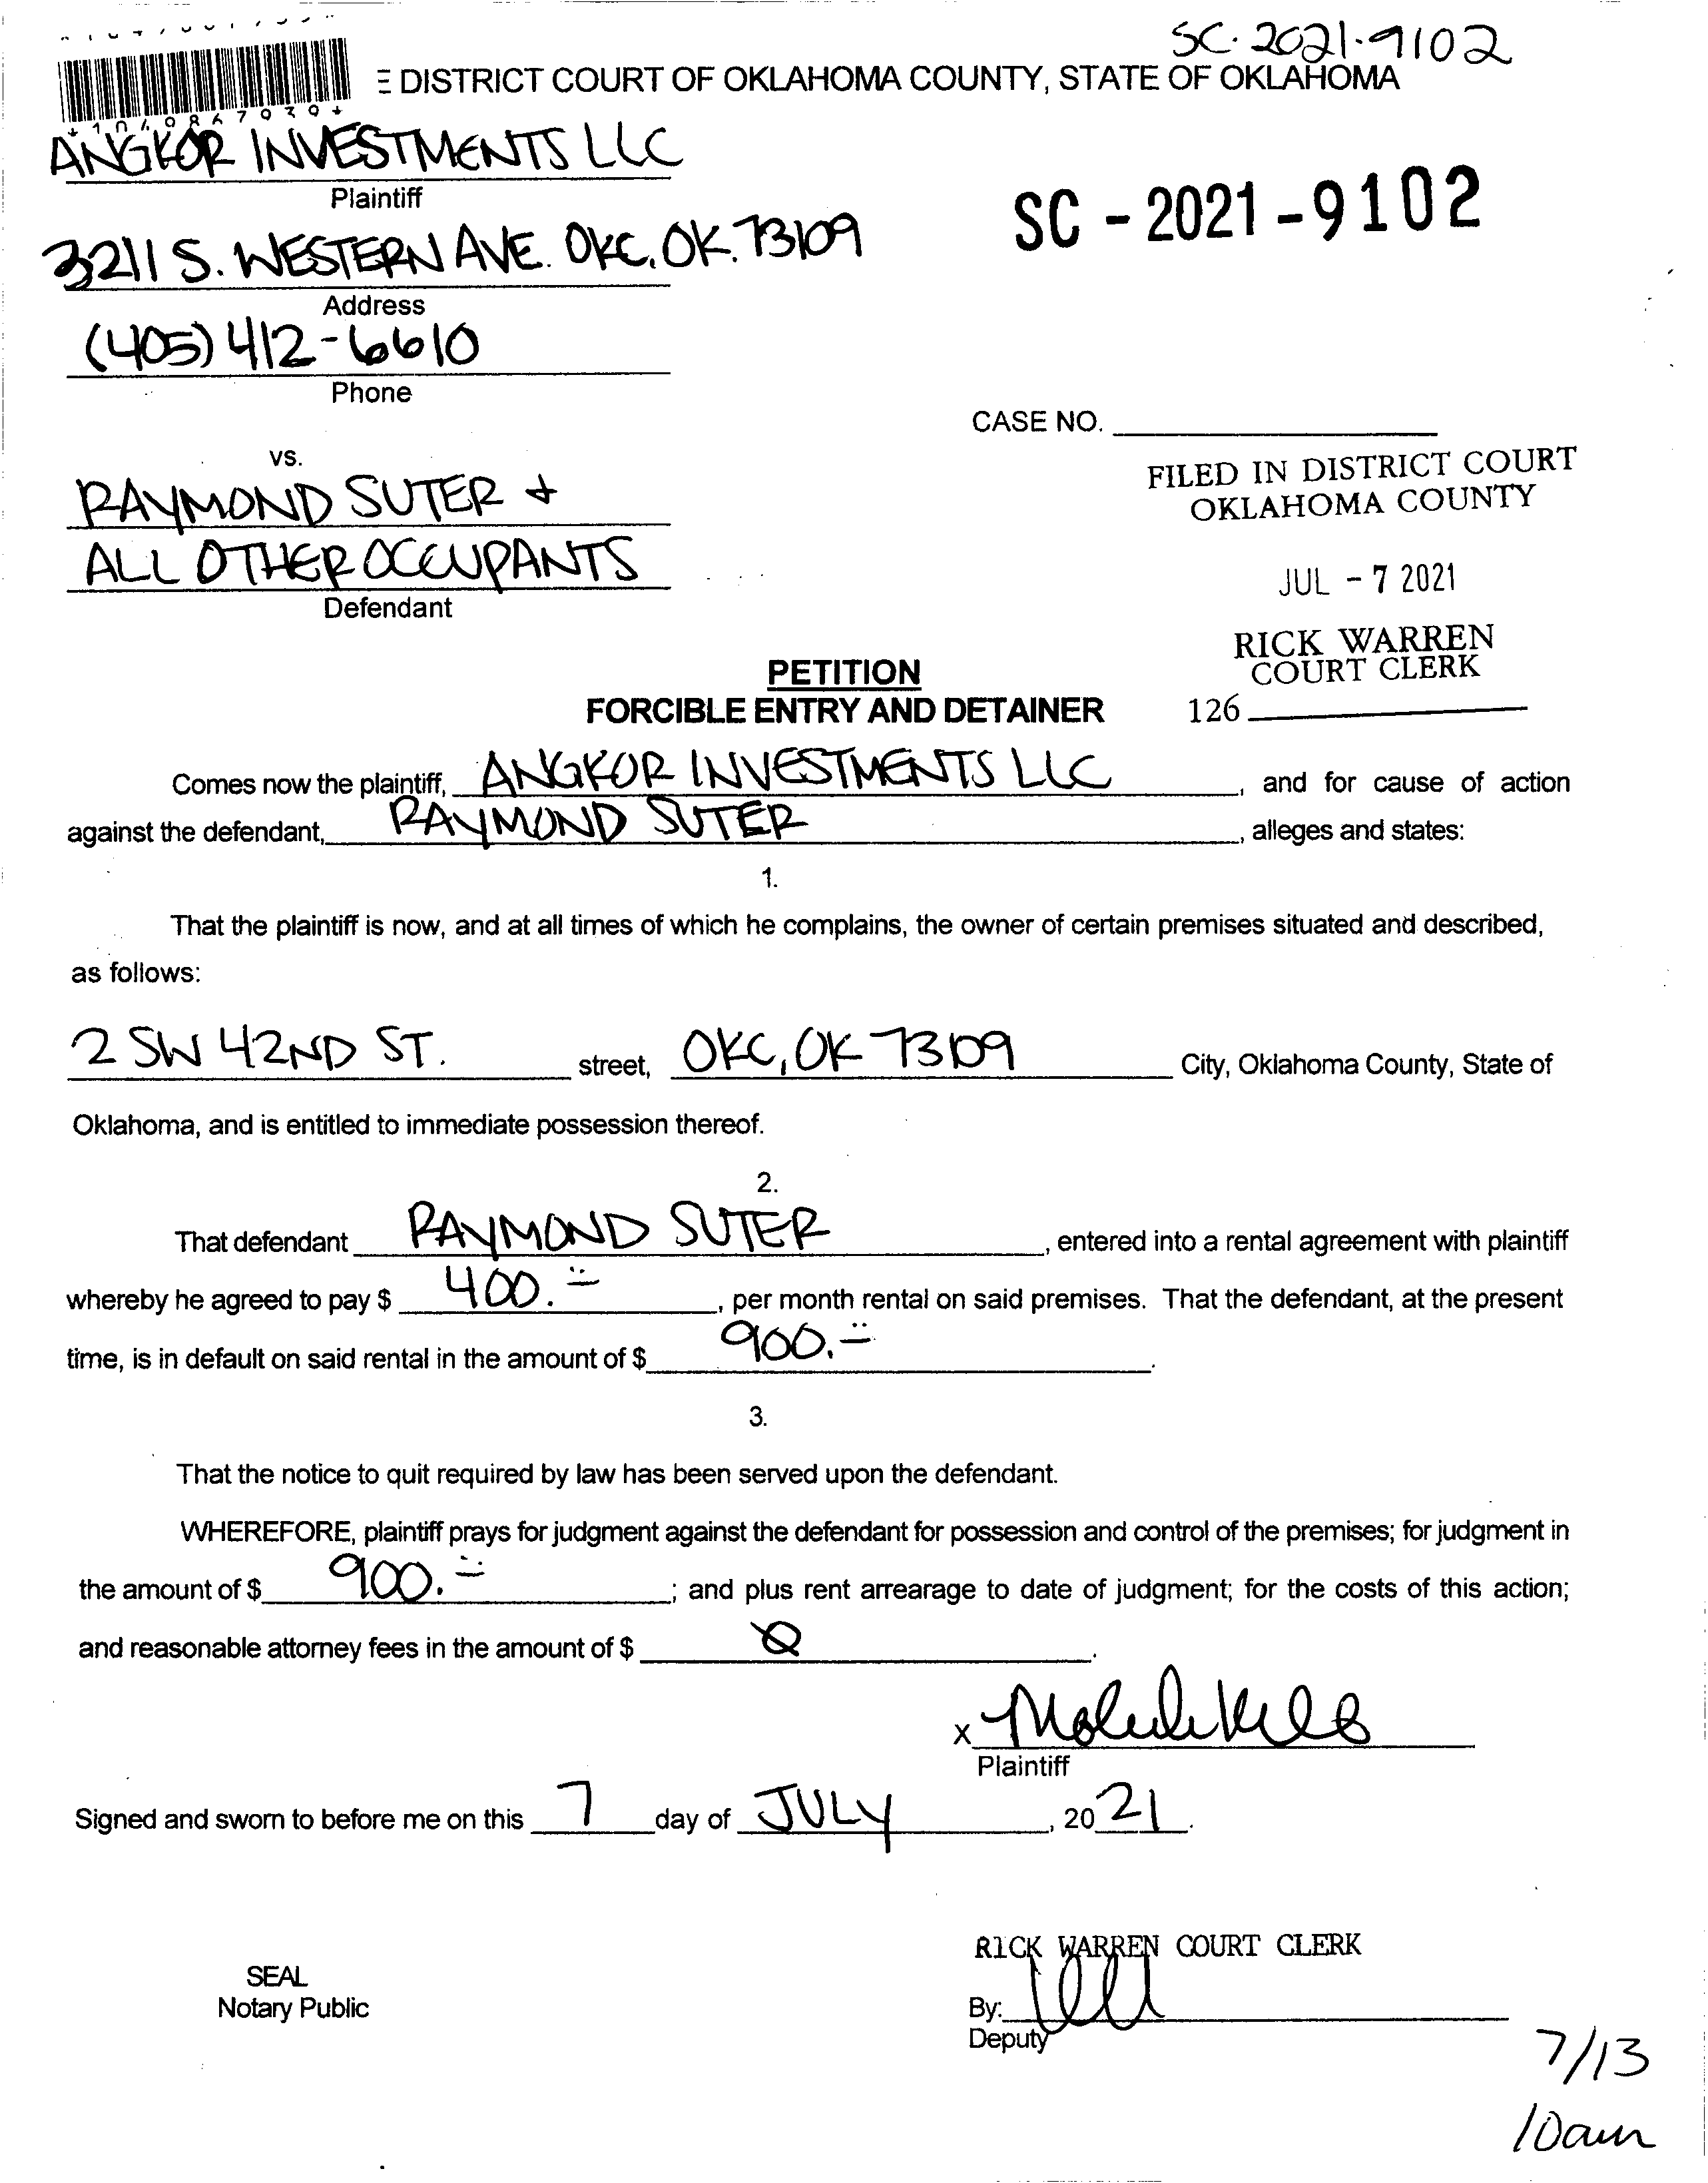 SC-2021-9102
E DISTRICT COURT OF OKLAHOMA COUNTY, STATE OF OKLAHOMA
ANGKOR INVESTMENTS LLC
Plaintiff
SC - 2021 - 9102
3211 S. WESTERN AVE. OKC, OK. 73109
Address
(405) 412-6610
Phone
CASE NO.
vs.
FILED IN DISTRICT COURT
OKLAHOMA COUNTY
RAYMOND SUTER &
ALL OTHER OCCUPANTS
Defendant
JUL - 7 2021
RICK WARREN
COURT CLERK
126
PETITION
FORCIBLE ENTRY AND DETAINER
Comes now the plaintiff, ANGKOR INVESTMENTS LLC, and for cause of action
against the defendant, RAYMOND SUTER, alleges and states:
1.
That the plaintiff is now, and at all times of which he complains, the owner of certain premises situated and described,
as follows:
2 SW 42ND ST. street, OKC, OK 73109 City, Oklahoma County, State of
Oklahoma, and is entitled to immediate possession thereof.
2.
That defendant RAYMOND SUTER, entered into a rental agreement with plaintiff
whereby he agreed to pay $ 400.-, per month rental on said premises. That the defendant, at the present
time, is in default on said rental in the amount of $ 900.-.
3.
That the notice to quit required by law has been served upon the defendant.
WHEREFORE, plaintiff prays for judgment against the defendant for possession and control of the premises; for judgment in
the amount of $ 900.-; and plus rent arrearage to date of judgment; for the costs of this action;
and reasonable attorney fees in the amount of $ 0.
X
Plaintiff
Signed and sworn to before me on this 7 day of JULY, 2021.
RICK WARREN COURT CLERK
SEAL
Notary Public
By:
Deputy
7/13
10am